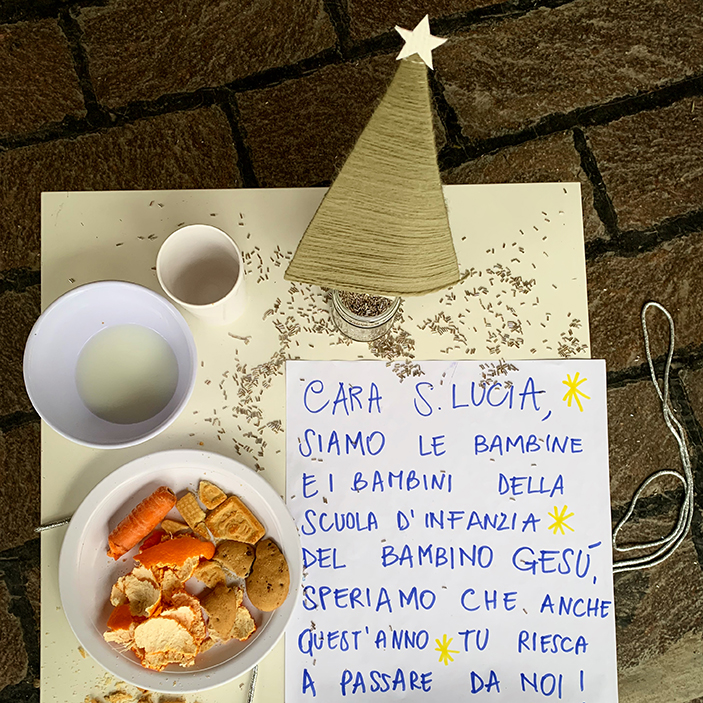 CARA S. LUCIA,
SIAMO LE BAMBINE
E I BAMBINI DELLA
SCUOLA D'INFANZIA
DEL BAMBINO GESÙ,
SPERIAMO CHE ANCHE
QUEST'ANNO TU RIESCA
A PASSARE DA NOI!